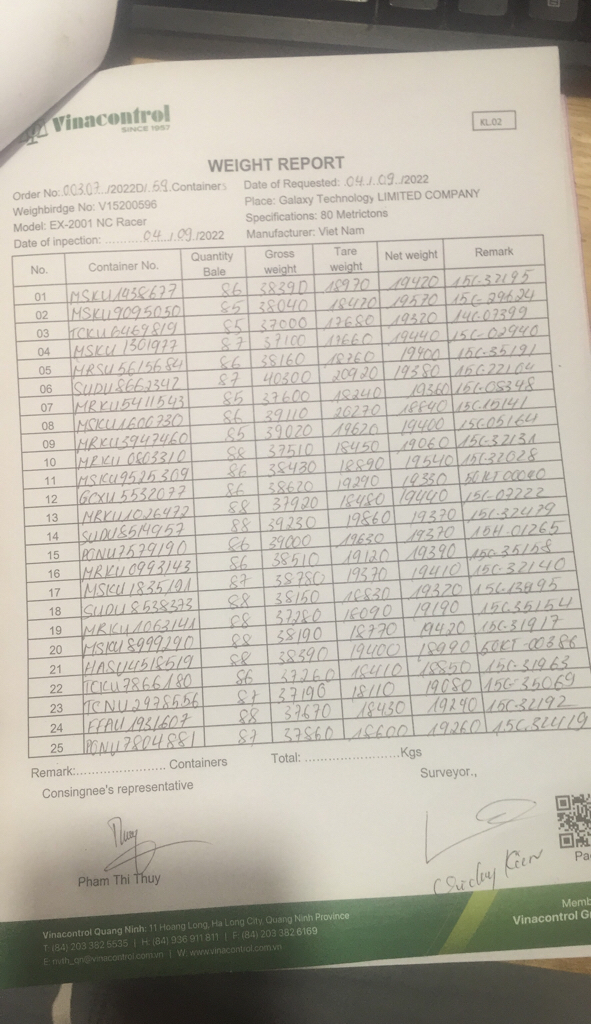 Vinacontrol
SINCE 1957
KL.02
WEIGHT REPORT
Order No: 00307../2022D/.59.Containers Date of Requested: .04./.09../2022
Weighbirdge No: V15200596 Place: Galaxy Technology LIMITED COMPANY
Model: EX-2001 NC Racer Specifications: 80 Metrictons
Date of inpection: ............04./09./2022 Manufacturer: Viet Nam
No. Container No. Quantity Bale Gross weight Tare weight Net weight Remark
01 MSKU1938677 86 38390 18970 19420 15C-32195
02 MSKU9095050 85 38040 18470 19570 15C-29624
03 TCKU6469819 85 37000 17680 19320 14C-07399
04 MSKU1301977 87 37100 17660 19440 15C-02940
05 MRSU5615684 86 38160 18260 19900 15C-35191
06 SUDU8662342 87 40300 20920 19380 15C-22104
07 MRKU5411543 85 37600 18240 19360 15C-08348
08 MSKU1600730 86 39110 20270 18840 15C-15141
09 MRKU3947460 85 39020 19620 19400 15C-05164
10 MRKU0803310 88 37510 18450 19060 15C-32131
11 MSKU9525309 86 38430 18890 19540 15C-32028
12 GCXU5532077 86 38620 19290 19330 50KT 00060
13 MRKU1026472 88 37920 18480 19440 15C-07222
14 SUDU8514957 88 39230 19860 19370 15C-32479
15 PONU7579190 86 39000 19630 19370 15H-01265
16 MRKU0993143 86 38510 19120 19390 15C-35158
17 MSKU1835191 87 38780 19370 19410 15C-32140
18 SUDU8538373 88 38150 18830 19320 15C-13895
19 MRKU1063141 88 37280 18090 19190 15C35154
20 MSKU8999290 88 38190 18770 19420 15C-31917
21 HASU4518519 88 38390 19400 18990 50KT-00386
22 TCKU7866180 86 37260 18410 18850 15C-31963
23 TCNU2978556 87 37190 18110 19080 15C-35069
24 FFAU1931607 88 37670 18430 19240 15C-32192
25 PONU7804881 87 37860 18600 19260 15C-32419
Remark:........................ Containers Total: ........................Kgs
Consingnee's representative Surveyor.,
Pham Thi Thuy
Vinacontrol Quang Ninh: 11 Hoang Long, Ha Long City, Quang Ninh Province
T: (84) 203 382 5535 | H: (84) 936 911 811 | F: (84) 203 382 6169
W: www.vinacontrol.com.vn
Vinacontrol